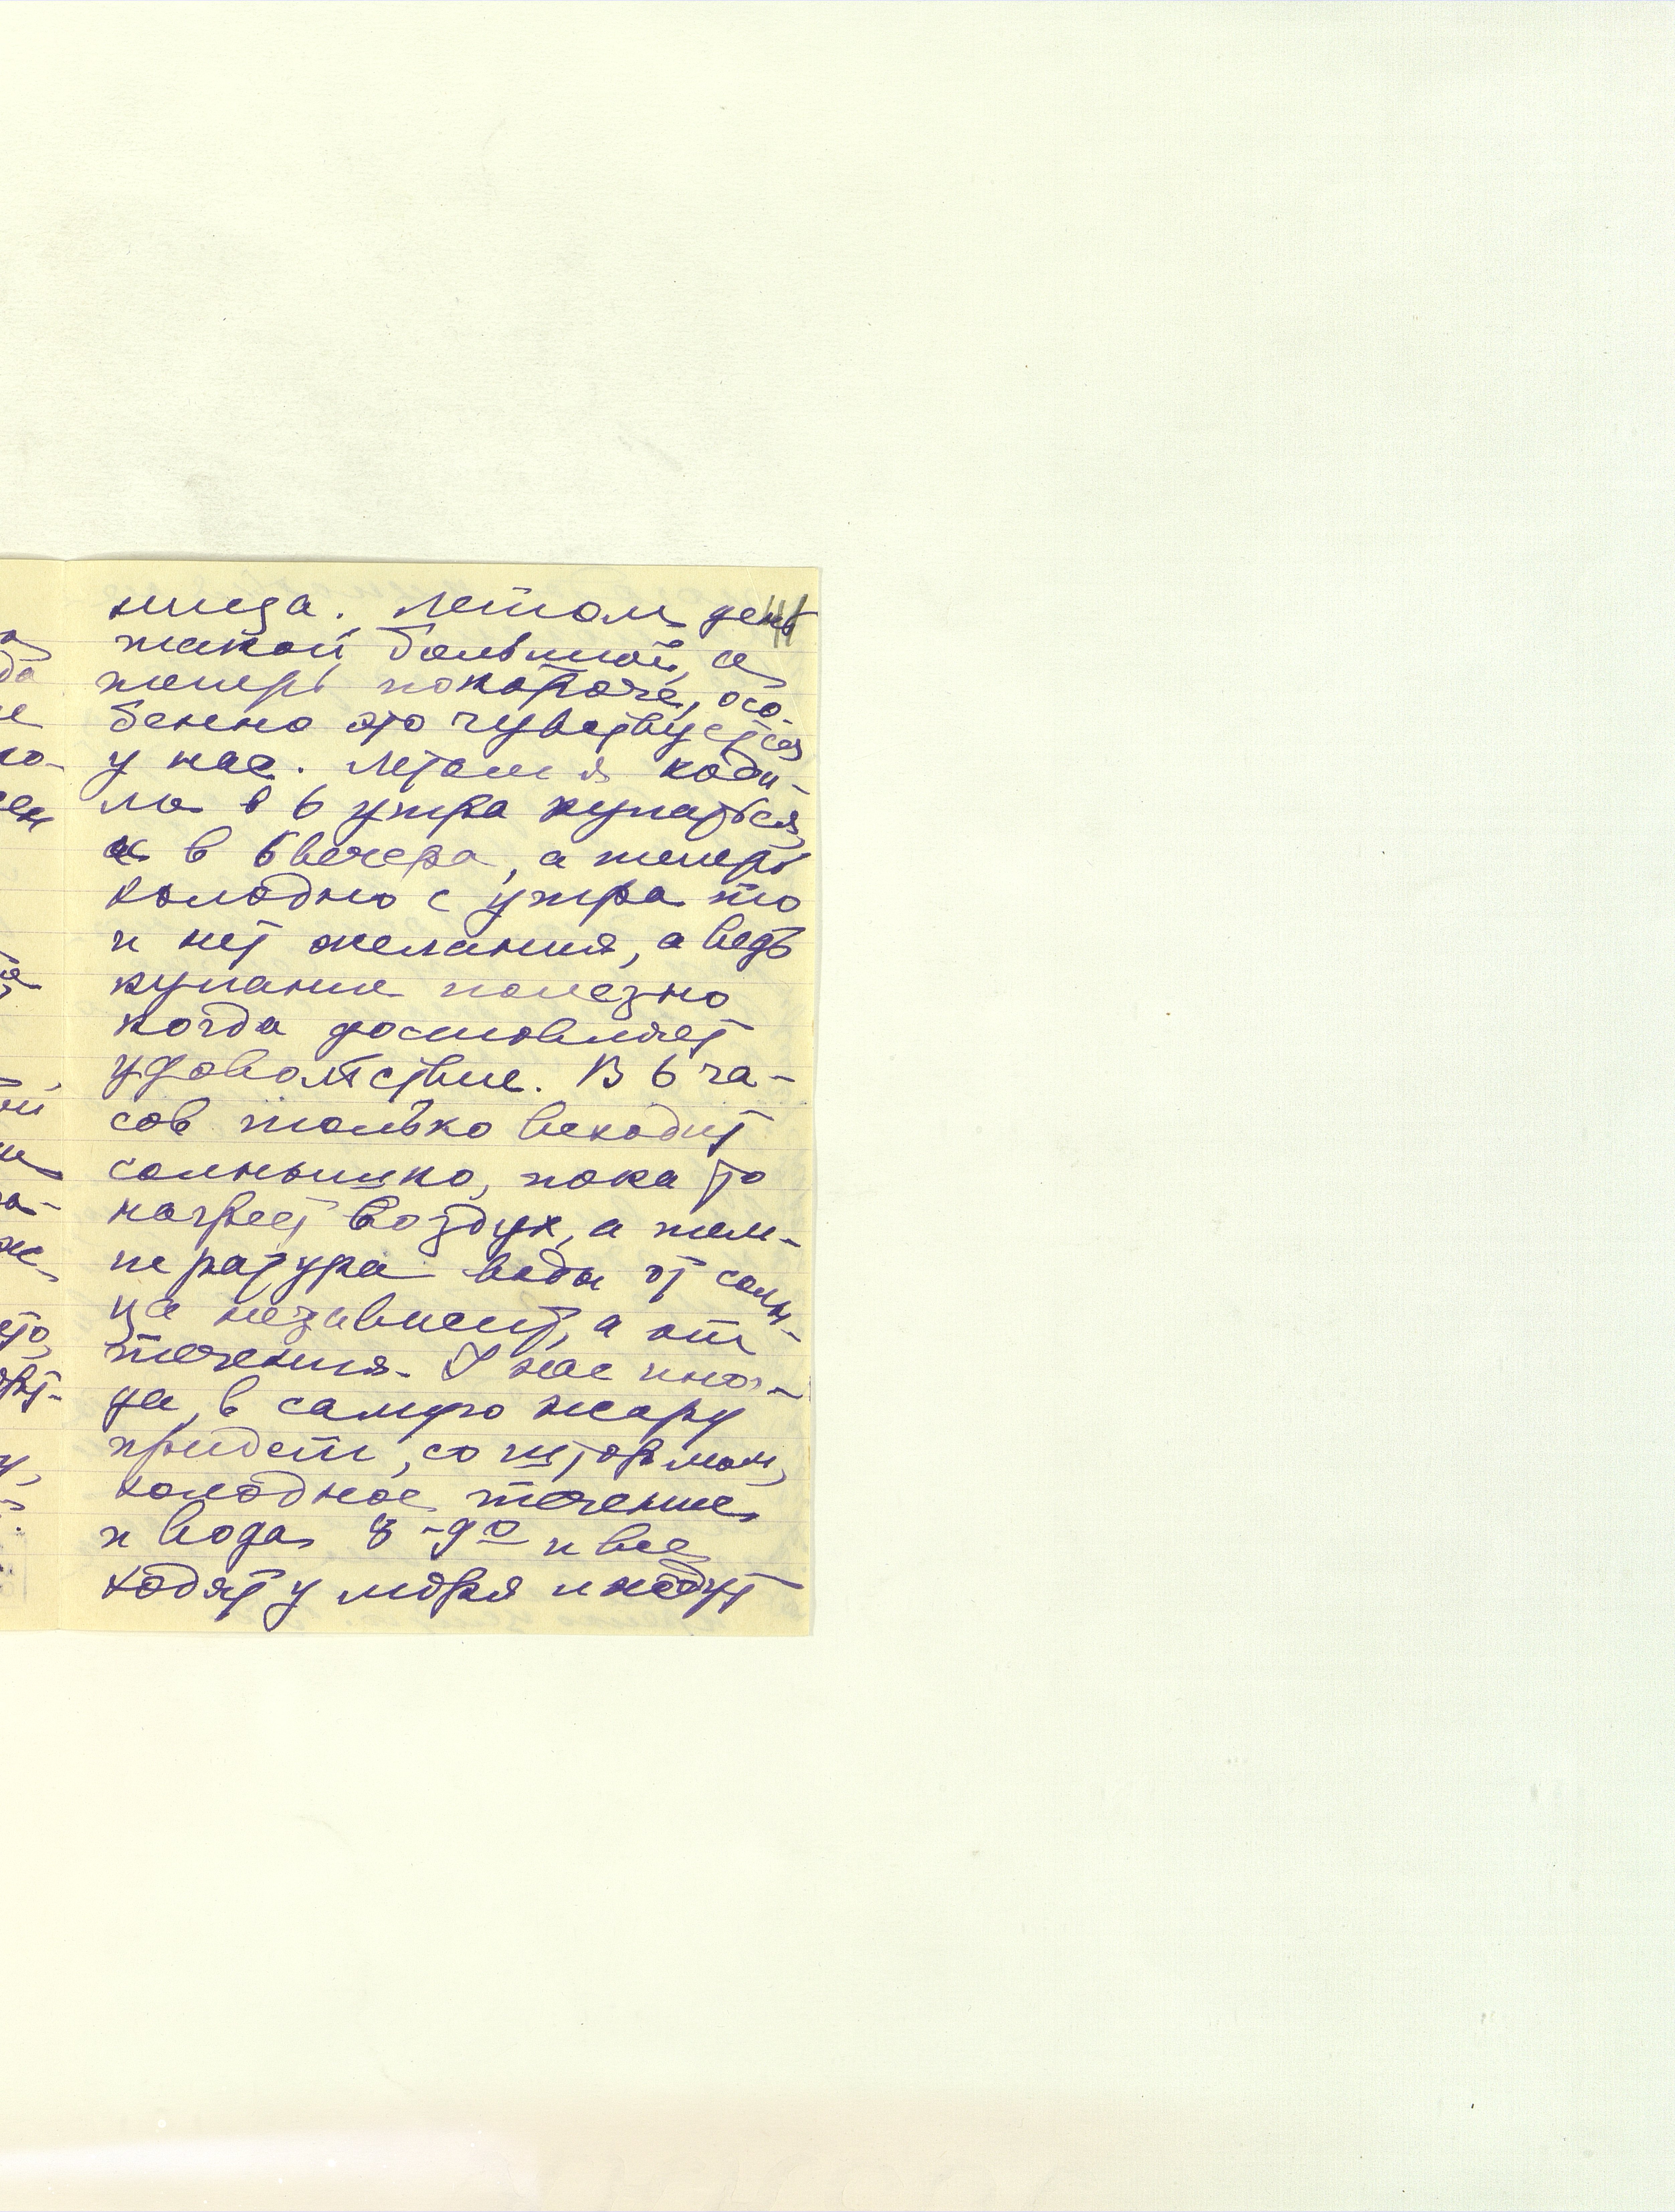 ница. Летом день
такой большой, а
теперь покороче, осо-
бенно это чувствуется
у нас. Летом я ходи-
ла в 6 утра купаться,
и в 6 вечера, а теперь
холодно с утра то
и нет желания, а ведь
купание полезно
когда доставляет
удовольствие. В 6 ча-
сов только всходит
солнышко, пока то
нагреет воздух, а тем-
пература воды от солн-
ца независит, а от
течения. У нас иног-
да, в самую жару
придет, со штормом,
холодное течение
и вода 8-9º и все
ходят у моря и ждут